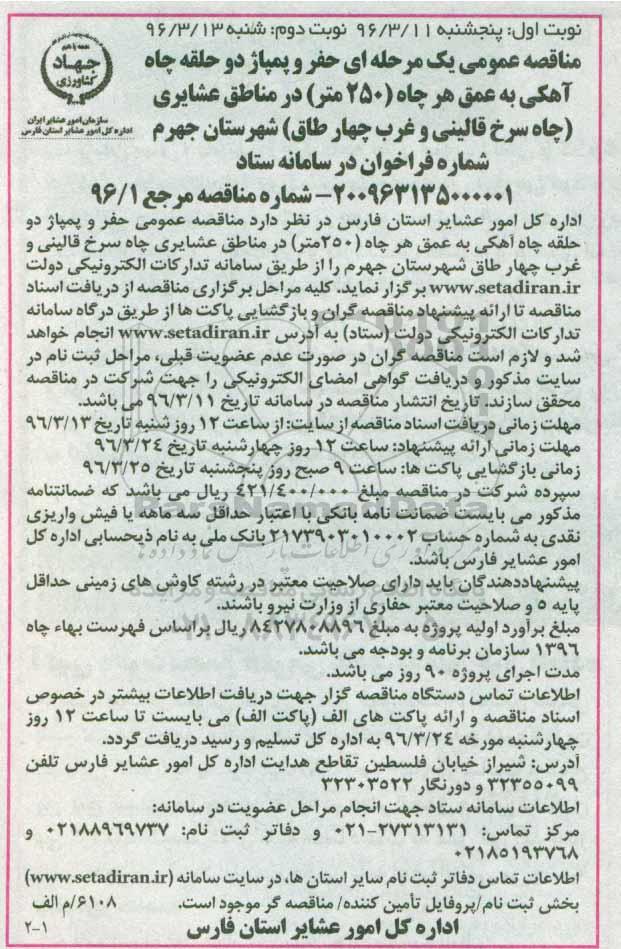 نوبت اول: پنجشنبه ۹۶/۳/۱۱ نوبت دوم: شنبه ۹۶/۳/۱۳
جهاد
کشاورزی
سازمان امور عشایر ایران
اداره کل امور عشایر استان فارس
مناقصه عمومی یک مرحله ای حفر و پمپاژ دو حلقه چاه
آهکی به عمق هر چاه (۲۵۰ متر) در مناطق عشایری
(چاه سرخ قالینی و غرب چهار طاق) شهرستان جهرم
شماره فراخوان در سامانه ستاد
۲۰۰۹۶۳۱۳۵۰۰۰۰۰۱- شماره مناقصه مرجع ۹۶/۱
اداره کل امور عشایر استان فارس در نظر دارد مناقصه عمومی حفر و پمپاژ دو
حلقه چاه آهکی به عمق هر چاه (۲۵۰متر) در مناطق عشایری چاه سرخ قالینی و
غرب چهار طاق شهرستان جهرم را از طریق سامانه تدارکات الکترونیکی دولت
www.setadiran.ir برگزار نماید. کلیه مراحل برگزاری مناقصه از دریافت اسناد
مناقصه تا ارائه پیشنهاد مناقصه گران و بازگشایی پاکت ها از طریق درگاه سامانه
تدارکات الکترونیکی دولت (ستاد) به آدرس www.setadiran.ir انجام خواهد
شد و لازم است مناقصه گران در صورت عدم عضویت قبلی، مراحل ثبت نام در
سایت مذکور و دریافت گواهی امضای الکترونیکی را جهت شرکت در مناقصه
محقق سازند. تاریخ انتشار مناقصه در سامانه تاریخ ۹۶/۳/۱۱ می باشد.
مهلت زمانی دریافت اسناد مناقصه از سایت: از ساعت ۱۲ روز شنبه تاریخ ۹۶/۳/۱۳
مهلت زمانی ارائه پیشنهاد: ساعت ۱۲ روز چهارشنبه تاریخ ۹۶/۳/۲۴
زمانی بازگشایی پاکت ها: ساعت ۹ صبح روز پنجشنبه تاریخ ۹۶/۳/۲۵
سپرده شرکت در مناقصه مبلغ ۴۲۱/۴۰۰/۰۰۰ ریال می باشد که ضمانتنامه
مذکور می بایست ضمانت نامه بانکی با اعتبار حداقل سه ماهه یا فیش واریزی
نقدی به شماره حساب ۲۱۷۳۹۰۳۰۱۰۰۰۲ بانک ملی به نام ذیحسابی اداره کل
امور عشایر فارس باشد.
پیشنهاددهندگان باید دارای صلاحیت معتبر در رشته کاوش های زمینی حداقل
پایه ۵ و صلاحیت معتبر حفاری از وزارت نیرو باشند.
مبلغ برآورد اولیه پروژه به مبلغ ۸۴۲۷۸۰۸۸۹۶ ریال براساس فهرست بهاء چاه
۱۳۹۶ سازمان برنامه و بودجه می باشد.
مدت اجرای پروژه ۹۰ روز می باشد.
اطلاعات تماس دستگاه مناقصه گزار جهت دریافت اطلاعات بیشتر در خصوص
اسناد مناقصه و ارائه پاکت های الف (پاکت الف) می بایست تا ساعت ۱۲ روز
چهارشنبه مورخه ۹۶/۳/۲۴ به اداره کل تسلیم و رسید دریافت گردد.
آدرس: شیراز خیابان فلسطین تقاطع هدایت اداره کل امور عشایر فارس تلفن
۳۲۳۵۵۰۹۹ و دورنگار ۳۲۳۰۳۵۲۲
اطلاعات سامانه ستاد جهت انجام مراحل عضویت در سامانه:
مرکز تماس: ۲۷۳۱۳۱۳۱-۰۲۱ و دفاتر ثبت نام: ۰۲۱۸۸۹۶۹۷۳۷ و
۰۲۱۸۵۱۹۳۷۶۸
اطلاعات تماس دفاتر ثبت نام سایر استان ها، در سایت سامانه (www.setadiran.ir)
بخش ثبت نام/پروفایل تأمین کننده/ مناقصه گر موجود است. ۶۱۰۸/م الف
اداره کل امور عشایر استان فارس
۲-۱